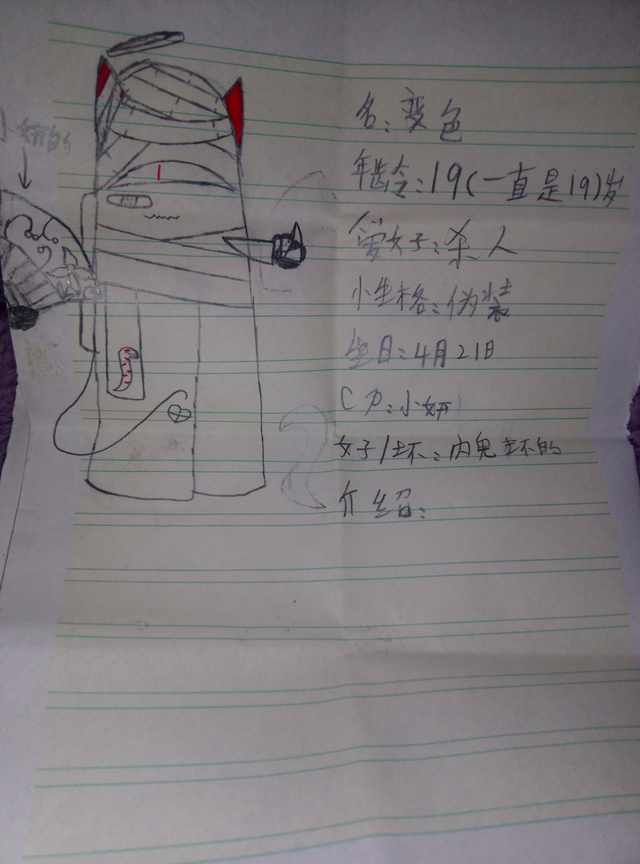 妍的
名：变色
年龄：19(一直是19)岁
爱好：杀人
性格：伪装
生日：4月21日
CP：小妍
好/坏：内鬼 坏的
介绍：